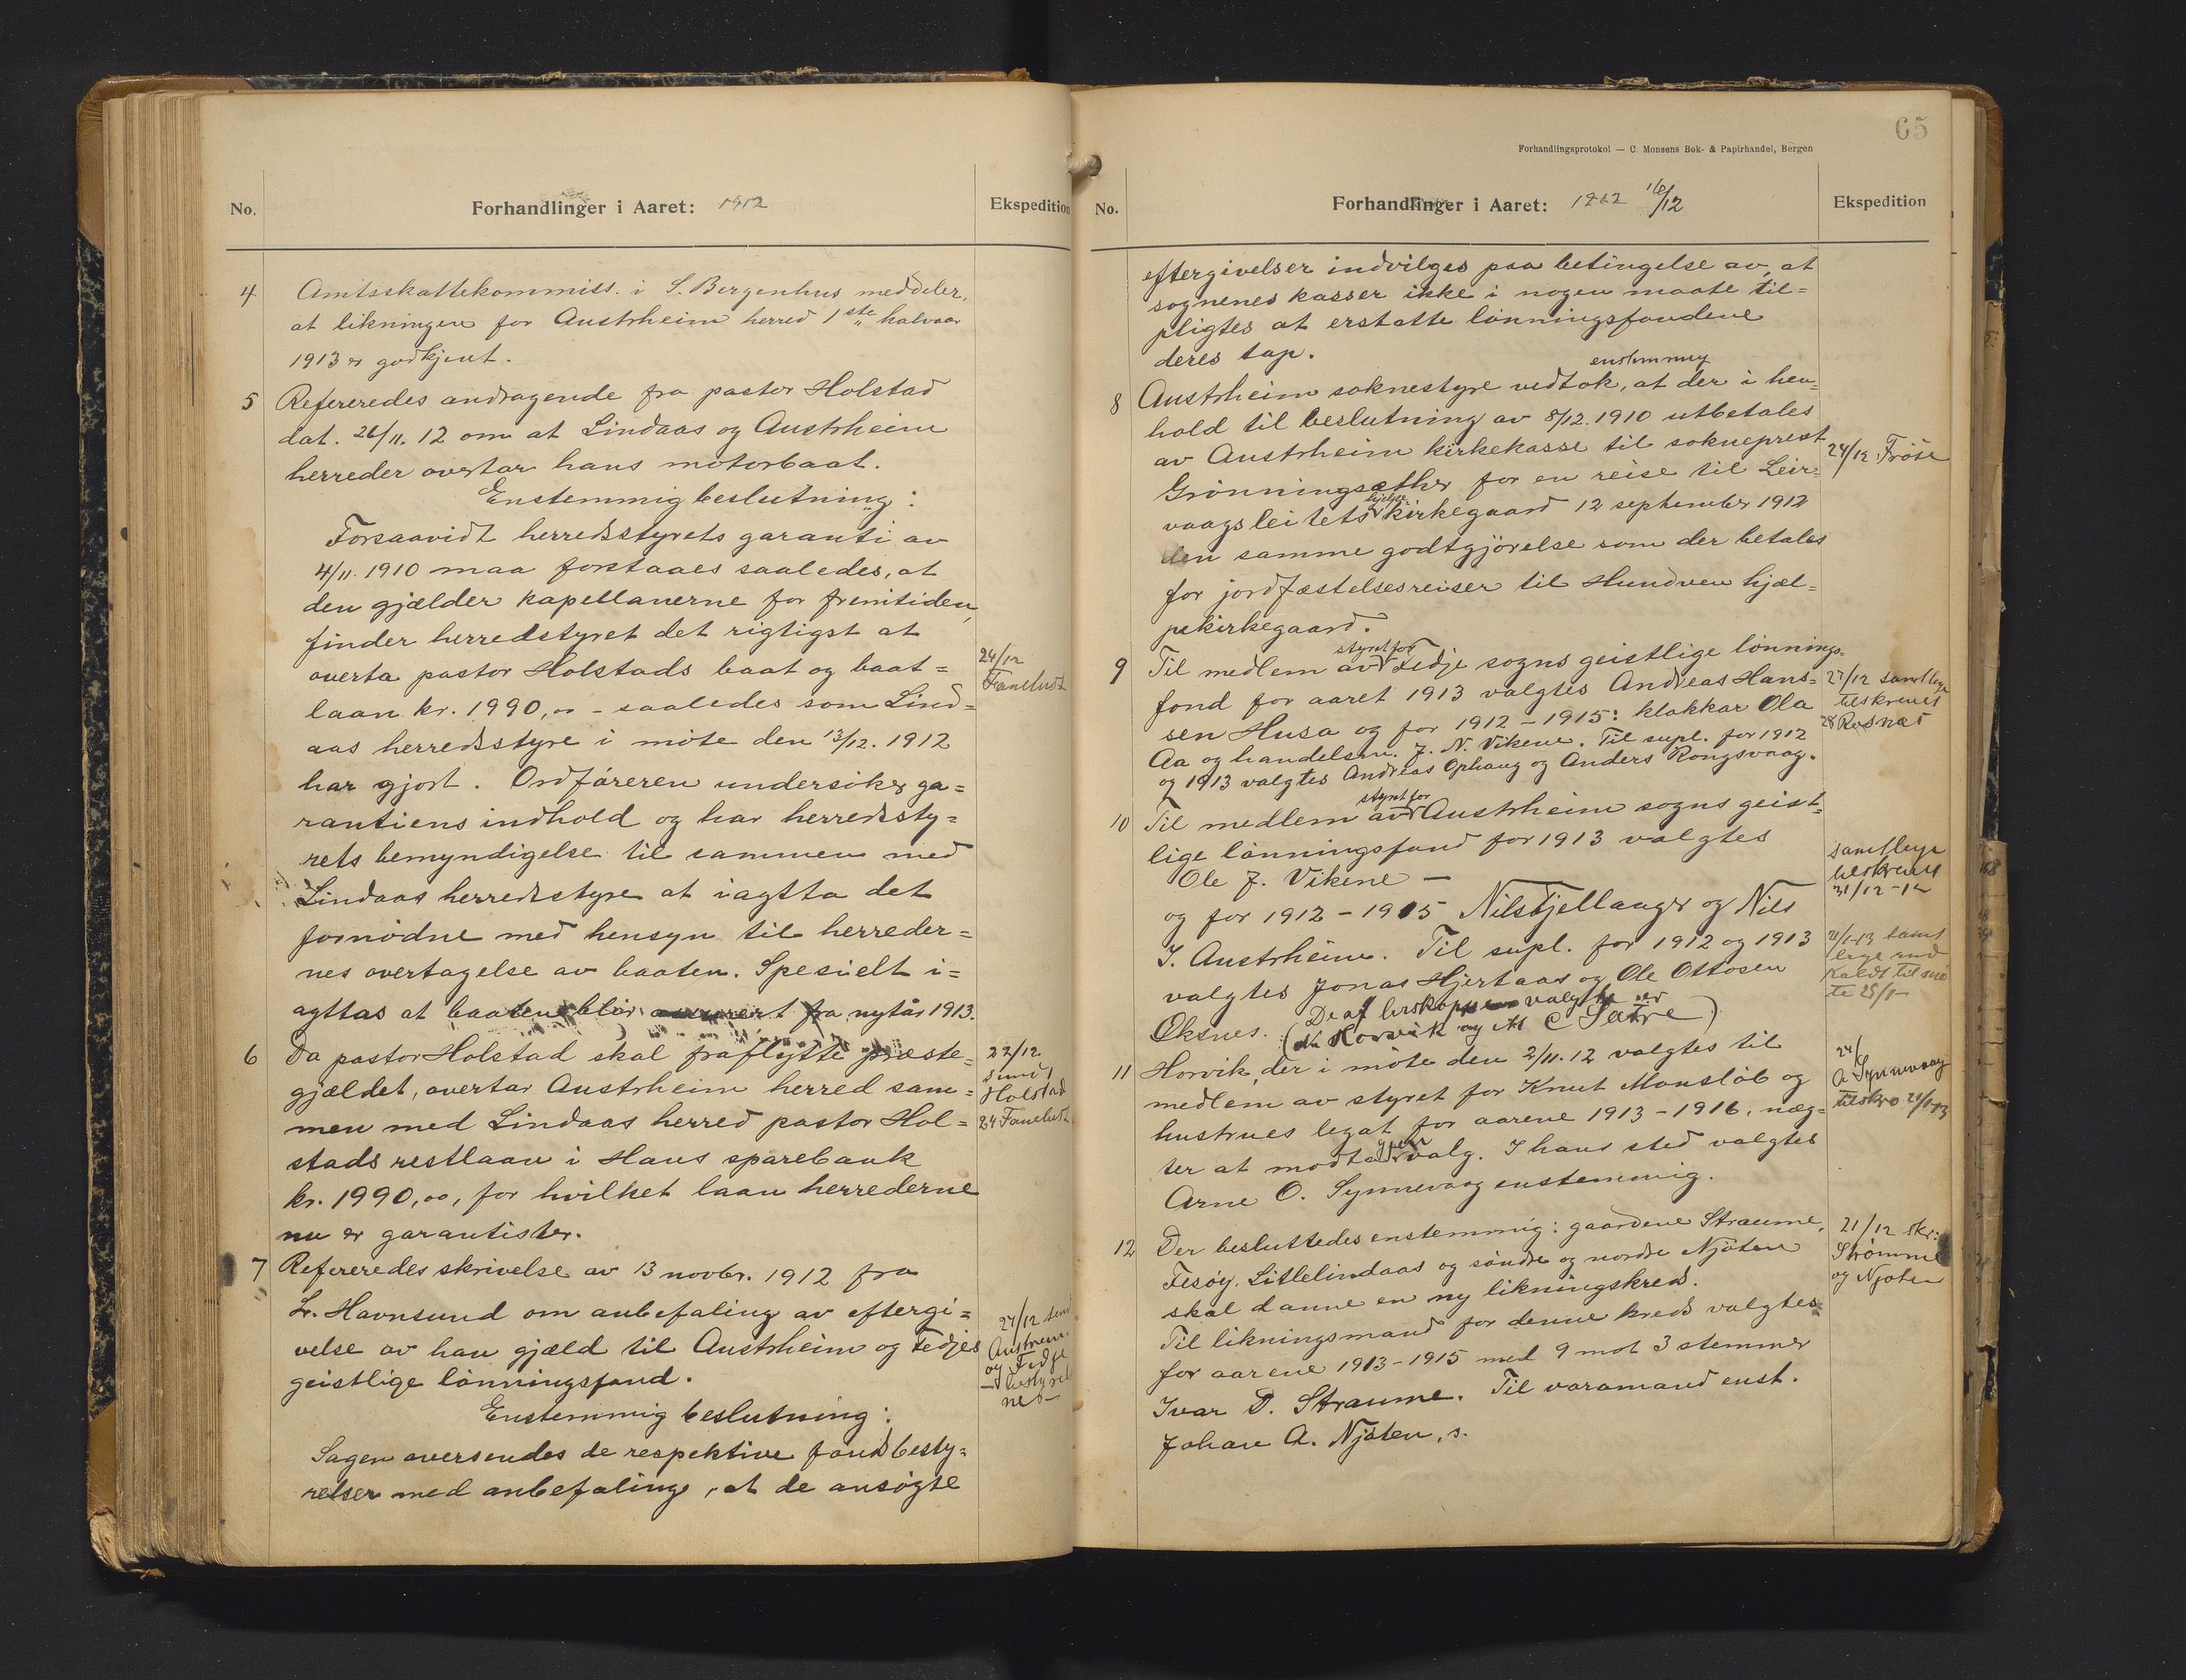 No.
Forhandlinger i Aaret: 1912
Ekspedition
4
Amtsskattekommiss. i S. Bergenhus meddeler,
at likningen for Austrheim herred 1ste halvaar
1913 er godkjent.
5
Refereredes andragende fra pastor Holstad
dat. 26/11. 12 om at Lindaas og Austrheim
herreder overtar hans motorbaat.
Enstemmig beslutning:
Forsaavidt herredsstyrets garanti av
4/11. 1910 maa forstaaes saaledes, at
den gjælder kapellanerne for fremtiden,
finder herredstyret det rigtigst at
overta pastor Holstads baat og baat=
laan kr. 1990,00 - saaledes som Lind=
aas herredsstyre i møte den 13/12. 1912
har gjort. Ordføreren undersøker ga=
rantiens indhold og har herredssty=
rets bemyndigelse til sammen med
Lindaas herredsstyre at iagtta det
fornødne med hensyn til herreder=
nes overtagelse av baaten. Spesielt i=
agttas at baaten blir assurert fra nytår 1913.
24/12
Fanehust
6
Da pastor Holstad skal fraflytte præste=
gjældet, overtar Austrheim herred sam=
men med Lindaas herred pastor Hol=
stads restlaan i Haus sparebank
kr. 1990,00, for hvilket laan herrederne
nu er garantister.
22/12
sendt
Holstad
24 Fanehust
7
Refereredes skrivelse av 13 novbr. 1912 fra
Lr. Havnsund om anbefaling av eftergi=
velse av han gjæld til Austrheim og Fedjes
geistlige lønningsfond.
Enstemmig beslutning:
Sagen oversendes de respektive fondsbesty=
relser med anbefaling, at de ansøgte
27/12 send
Austrem.
og Fedje
nes
65
Forhandlingsprotokol — C. Monsens Bok- & Papirhandel, Bergen
No.
Forhandlinger i Aaret: 1912 16/12
Ekspedition
eftergivelser indvilges paa betingelse av, at
sognenes kasser ikke i nogen maate til=
pligtes at erstatte lønningsfondene
deres tap.
enstemmig
8
Austrheim soknestyre vedtok, at der i hen=
hold til beslutning av 8/12. 1910 utbetales
av Austrheim kirkekasse til sokneprest
Grønningsæther for en reise til Leir=
vaagsleitets hjelpe kirkegaard 12 september 1912
den samme godtgjørelse som der betales
for jordfæstelsesreiser til Hundven hjæl=
pekirkegaard.
24/12 Frøse
9
Til medlem av styret for Fedje sogns geistlige lønnings=
fond for aaret 1913 valgtes Andreas Hans=
sen Husa og for 1912 - 1915: klokkar Ola
Aa og handelsm. J. N. Vikene. Til supl. for 1912
og 1913 valgtes Andreas Ophaug og Anders Rongsvaag.
27/12 samtlege
tilskrevet
28 Rosnæs
10
Til medlem av styret for Austrheim sogns geist=
lige lønningsfond for 1913 valgtes
Ole J. Vikene —
og for 1912 - 1915 Nils Fjellanger og Nils
I. Austrheim. Til supl. for 1912 og 1913
valgtes Jonas Hjertaas og Ole Ottosen
Øksnes. (De af biskoppen valgte er
N. Horvik og M C Sætre)
samtlege
tilskrevet
31/12-12
21/1-13 samt
lege ind
kaldt til mø
te 25/1-
11
Horvik, der i møte den 2/11. 12 valgtes til
medlem av styret for Knut Monsløb og
hustrues legat for aarene 1913 - 1916, næg=
ter at modta gjen valg. I hans sted valgtes
Arne O. Synnevaag enstemmig.
24/
A. Synnevaag
tilskr. 21/1-13
12
Der besluttedes enstemmig: gaardene Straume,
Fesøy, Litlelindaas og søndre og nordre Njøten
skal danne en ny likningskreds.
Til likningsmand for denne kreds valgtes
for aarene 1913 - 1915 med 9 mot 3 stemmer
Ivar D. Straume. Til varamand enst.
Johan A. Njøten, s.
21/12 skr:
Strømme
og Njøten